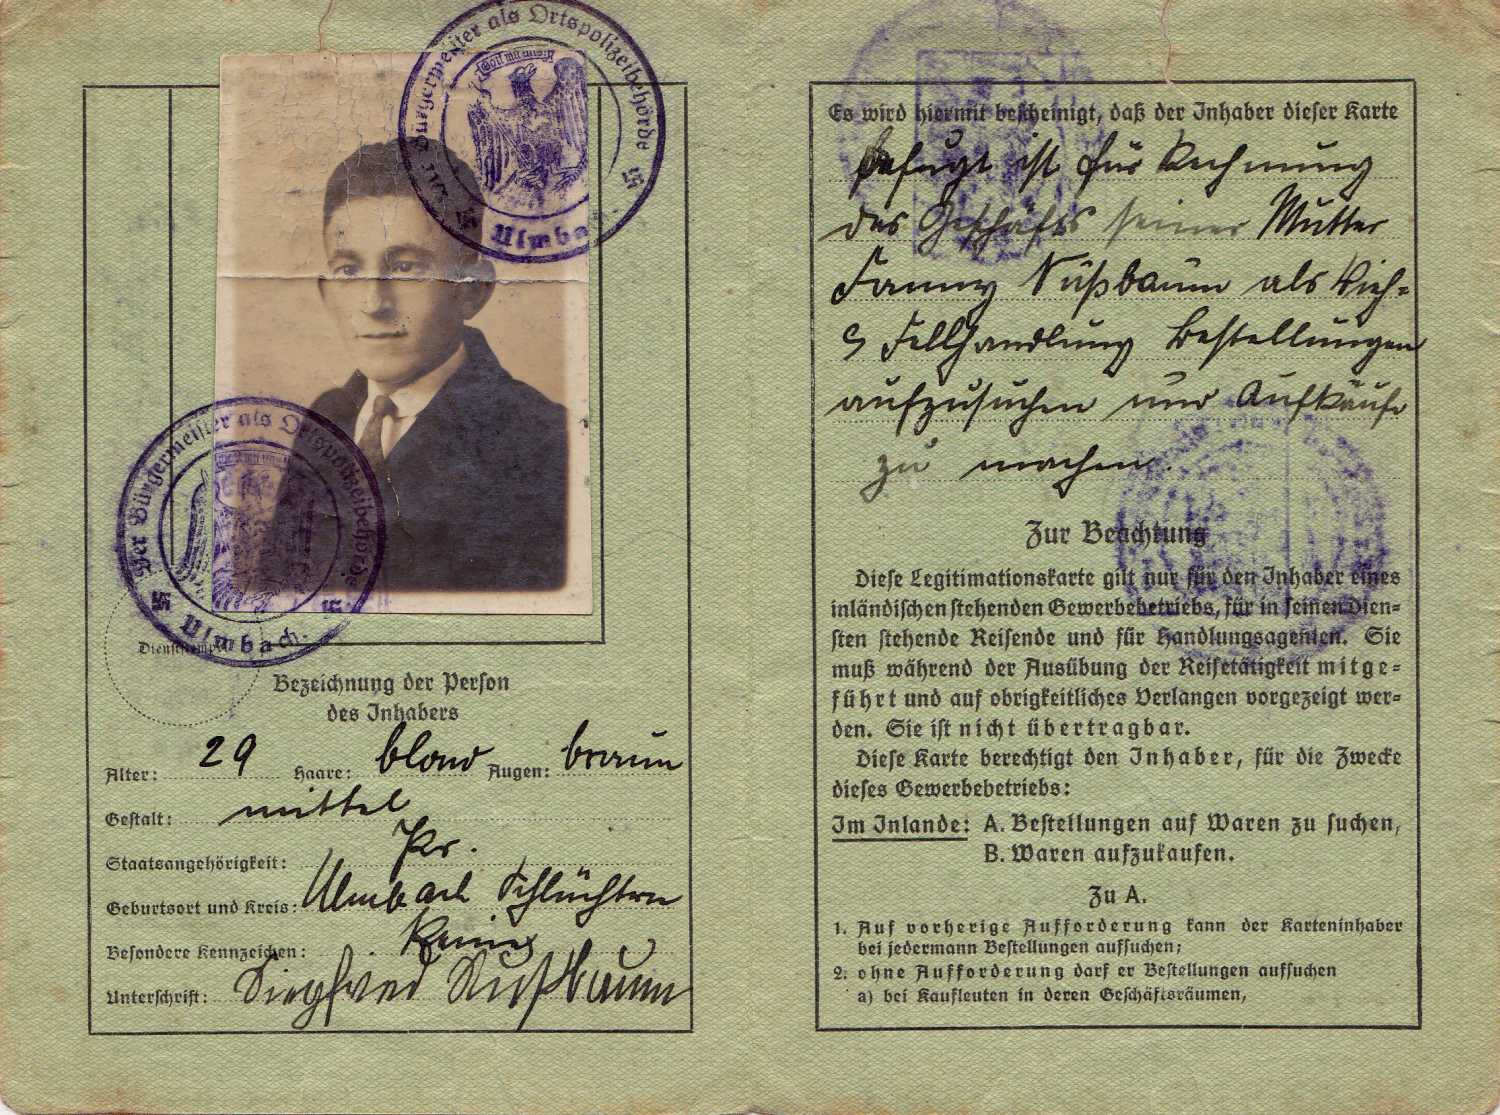 Der Bürgermeister als Ortspolizeibehörde
Gott mit uns
Ulmbach
Der Bürgermeister als Ortspolizeibehörde
Ulmbach.
Dienststempel
Bezeichnung der Person
des Inhabers
Alter: 29 Haare: blond Augen: braun
Gestalt: mittel
Staatsangehörigkeit: Pr.
Geburtsort und Kreis: Ulmbach Schlüchtern
Besondere Kennzeichen: Keine
Unterschrift: Siegfried Nußbaum
Es wird hiermit bescheinigt, daß der Inhaber dieser Karte
befugt ist für Rechnung
des Geschäfts seiner Mutter
Fanny Nußbaum als Vieh-
Fellhandlung Bestellungen
aufzusuchen und Aufkäufe
zu machen.
Zur Beachtung
Diese Legitimationskarte gilt nur für den Inhaber eines
inländischen stehenden Gewerbebetriebs, für in seinen Dien-
sten stehende Reisende und für Handlungsagenten. Sie
muß während der Ausübung der Reisetätigkeit mitge-
führt und auf obrigkeitliches Verlangen vorgezeigt wer-
den. Sie ist nicht übertragbar.
Diese Karte berechtigt den Inhaber, für die Zwecke
dieses Gewerbebetriebs:
Im Inlande: A. Bestellungen auf Waren zu suchen,
B. Waren aufzukaufen.
Zu A.
1. Auf vorherige Aufforderung kann der Karteninhaber
bei jedermann Bestellungen aufsuchen;
2. ohne Aufforderung darf er Bestellungen aufsuchen
a) bei Kaufleuten in deren Geschäftsräumen,